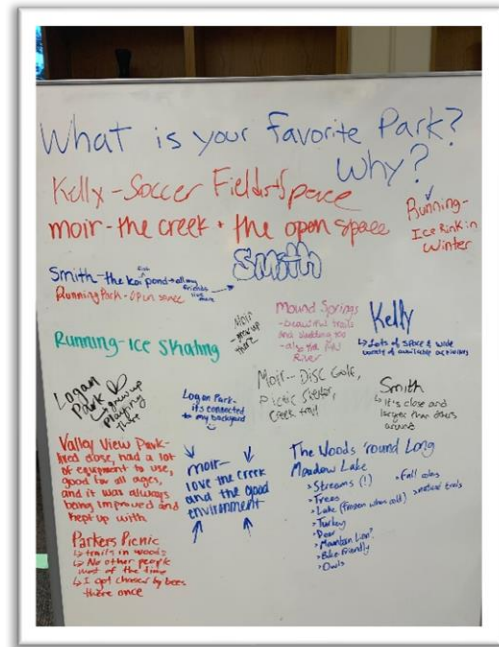 What is your favorite Park?
Why?
Kelly - Soccer Fields + Space
moir - the creek + the open space
Running -
Ice Rink in
Winter
Smith
Smith - the koi pond + all my
fish
friends
live
there
Running Park - open space
Mound Springs
- beautiful trails
and sledding too
- also the
River
Kelly
↳ Lots of space & wide
variety of available activities
Running - Ice Skating
Moir
- grew up
there
Moir - Disc Golf,
Picnic Shelter,
Creek trail
Smith
↳ it's close and
larger than others
around
Logan
Park
↳ grew up
playing
there
Logan Park -
it's connected
to my backyard
Valley View Park -
lived close, had a lot
of equipment to use,
good for all ages,
and it was always
being improved and
kept up with
moir -
love the creek
and the good
environment
The Woods 'round Long
Meadow Lake
> Streams (!)
> Trees
> Lake (frozen when cold)
> Turkey
> Deer
> Mountain Lion?
> Bike Friendly
> Owls
> Fall colors
> natural trails
Parkers Picnic
↳ trails in woods
↳ No other people
most of the time
↳ I got chased by bees
there once